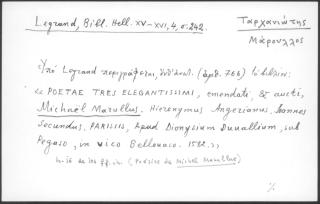 Legrand, Bibl. Hell. XV-XVI, 4, σ. 242.
Ταρχανιώτης
Μάρουλλος
Ὑπό Legrand περιγράφεται, (ἀρθ. 766) τὸ βιβλίον:
« POETAE TRES ELEGANTISSIMI, emendati, & aucti,
Michaël Marullus. Hieronymus Angerianus. Joannes
Secundus. PARISIIS, Apud Dionysium Duvallium, sub
Pegaso, in vico Bellovaco. 1582. »
in-16 de (Poésies de Michel Marulle)